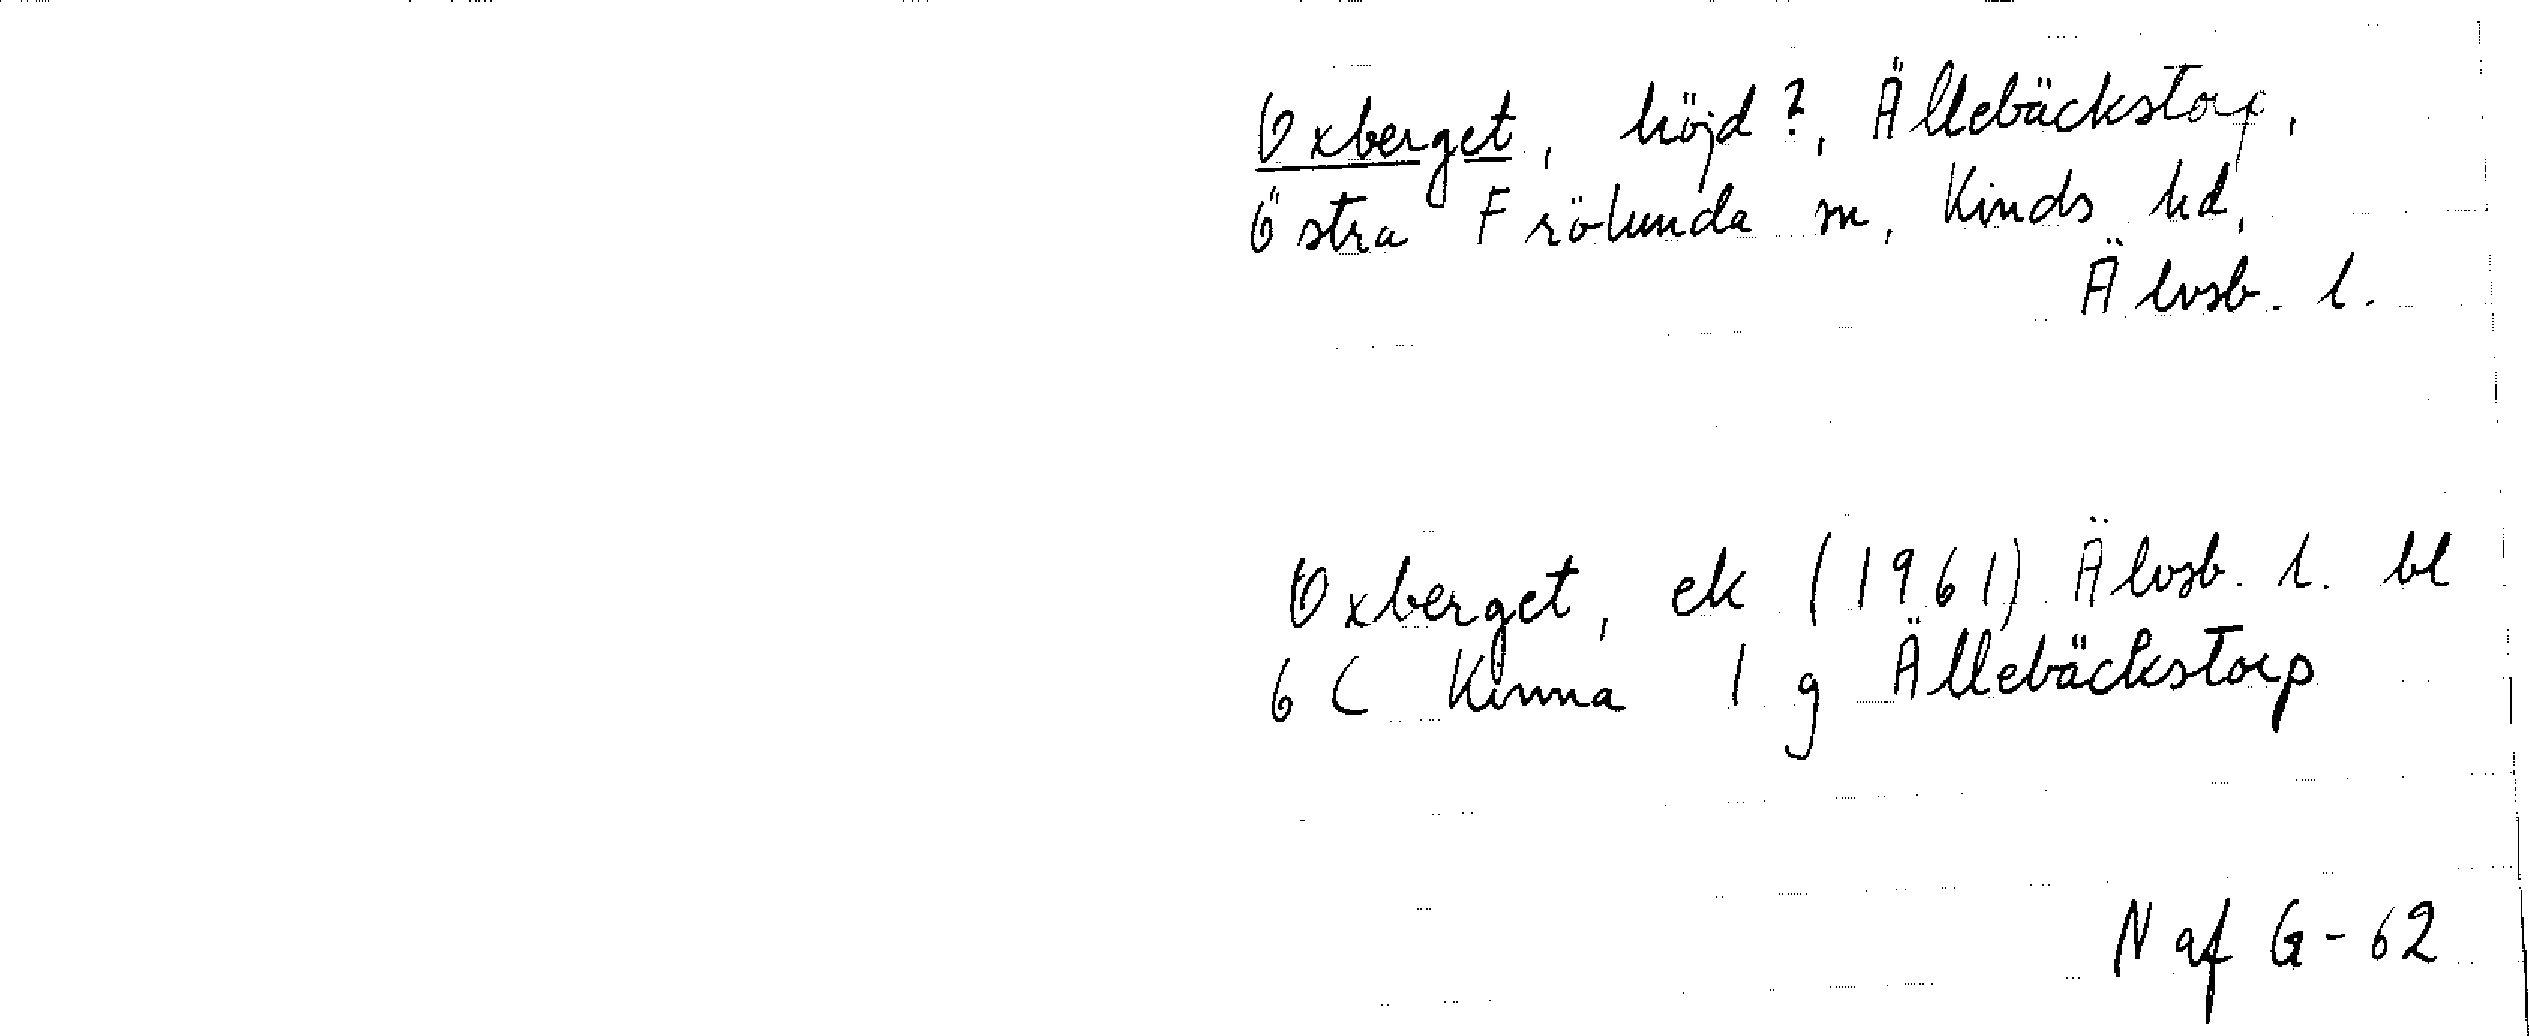 Oxberget, höjd?, Ällebäckstorp,
Östra Frölunda sn, Kinds hd,
Älvsb. l.
Oxberget, ek (1961) Älvsb. l. bl
6 C Kinna 1 g Ällebäckstorp
N af G-62